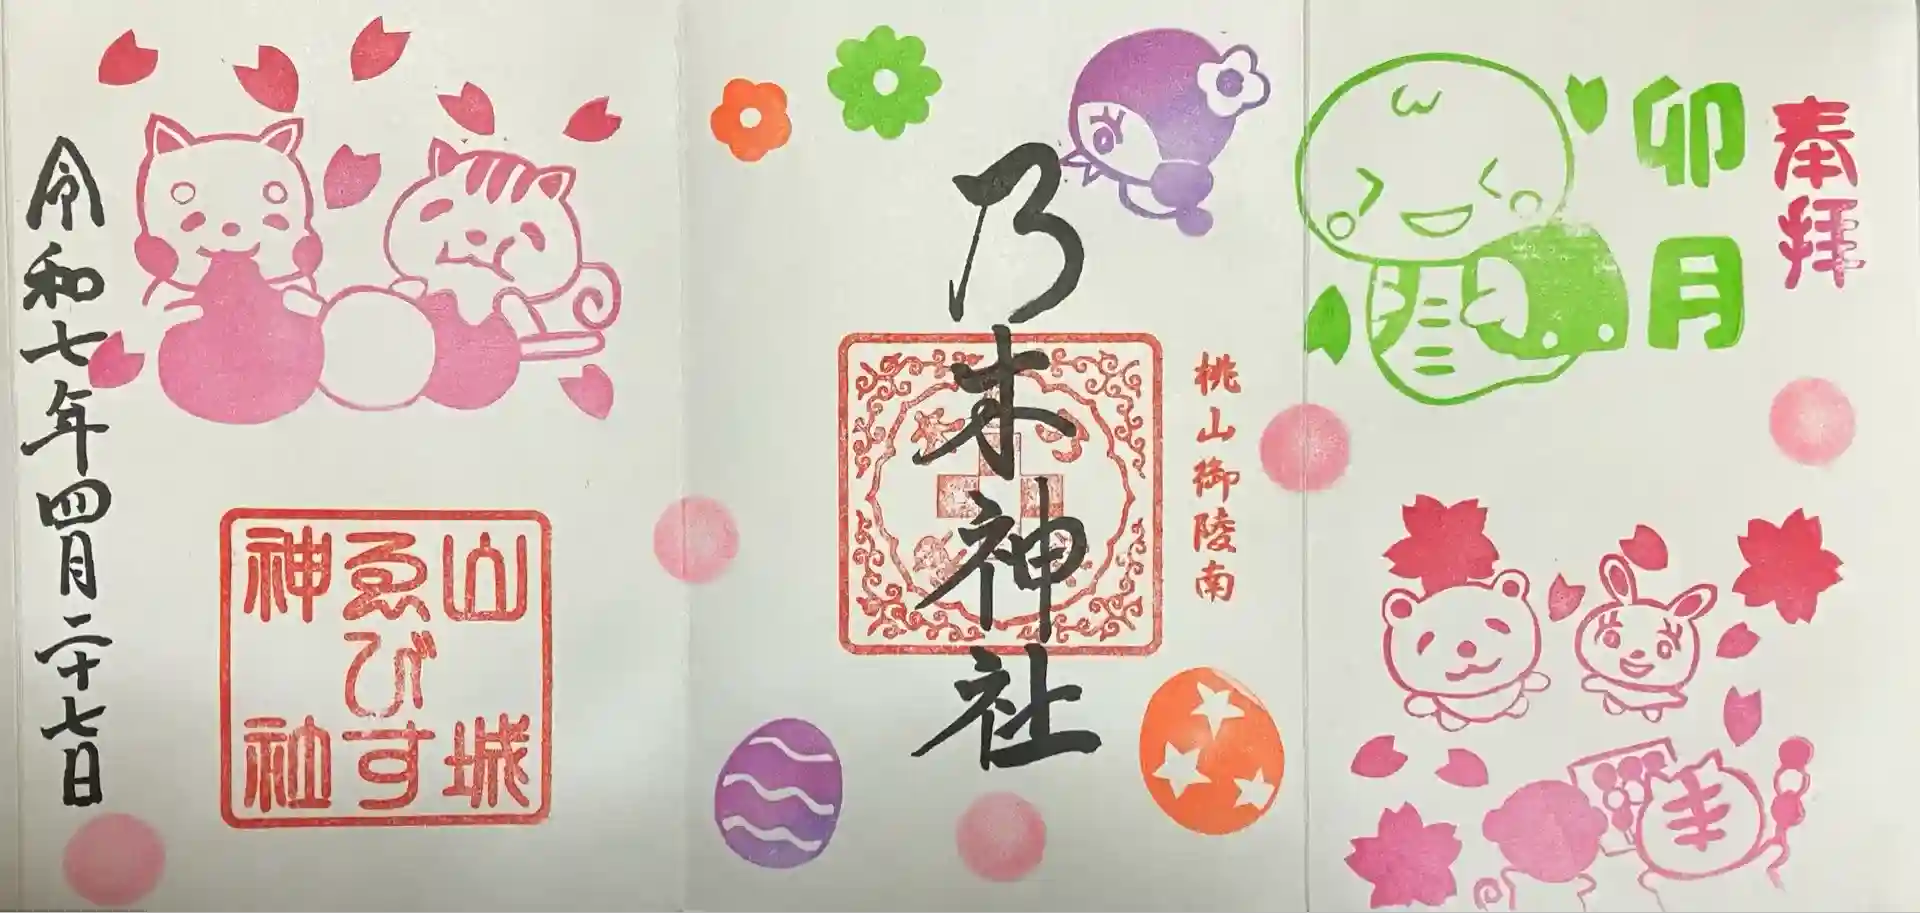 奉拝
卯月
桃山御陵南
乃木神社
山城
ゑびす
神社
令和七年四月二十七日